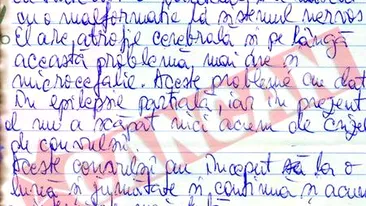 cu o malformație la sistemul nervos
El are, atrofie cerebrală și pe lângă
această problemă, mai are și
microcefalie. Aceste probleme au dat
în epilepsie parțială iar în prezent
el nu a scăpat nici acum de
de convulsii.
Aceste convulsii au început la o
lună și jumătate și continuă și acum